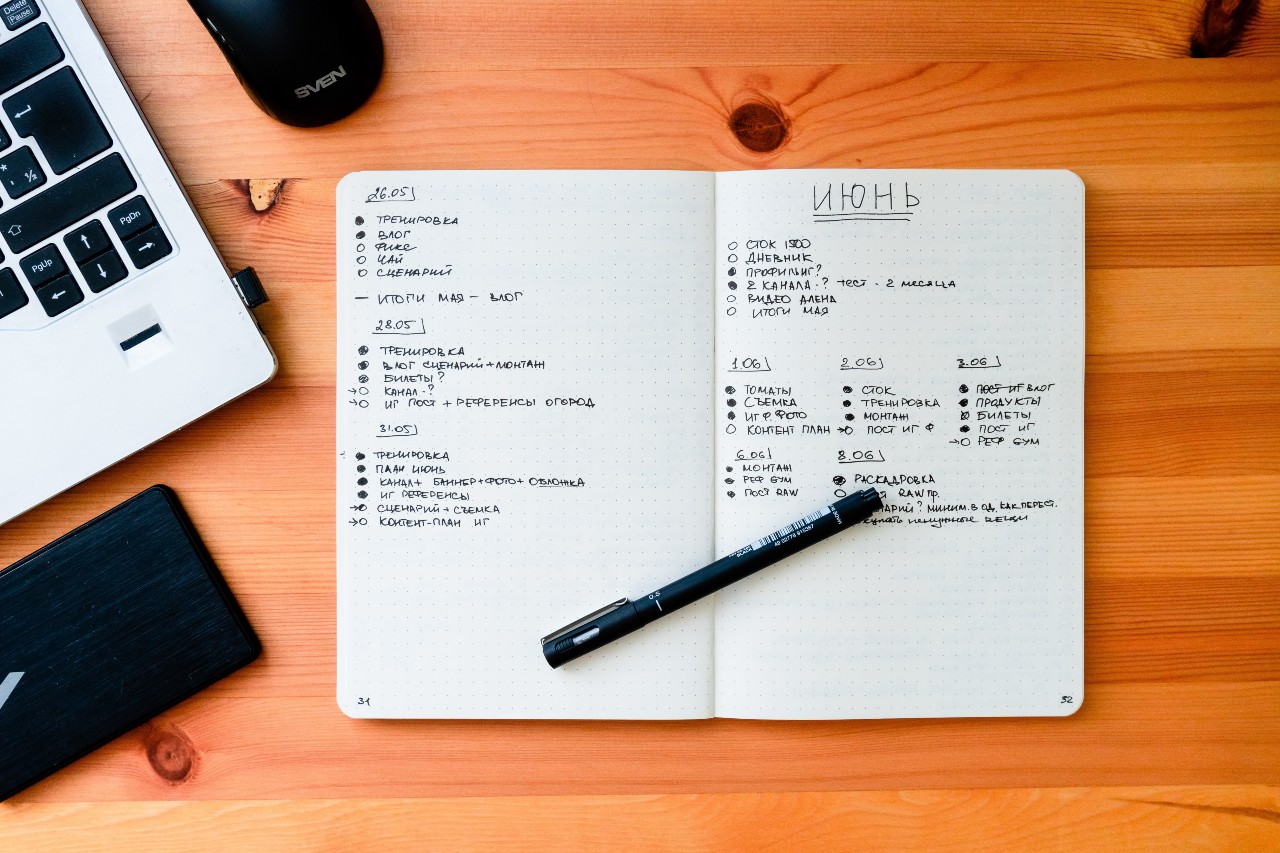 Delete
Pause
½
PgUp
PgDn
SVEN
26.05
ТРЕНИРОВКА
ВЛОГ
ФИКС
ЧАЙ
СЦЕНАРИЙ
— ИТОГИ МАЯ – ВЛОГ
28.05
ТРЕНИРОВКА
ВЛОГ СЦЕНАРИЙ + МОНТАЖ
БИЛЕТЫ?
КАНАЛ - ?
ИГ ПОСТ + РЕФЕРЕНСЫ ОГОРОД
31.05
ТРЕНИРОВКА
ПЛАН ИЮНЬ
КАНАЛ + БАННЕР + ФОТО + ОБЛОЖКА
ИГ РЕФЕРЕНСЫ
СЦЕНАРИЙ + СЪЕМКА
КОНТЕНТ-ПЛАН ИГ
31
ИЮНЬ
СТОК 1500
ДНЕВНИК
ПРОФИЛЬ ИГ?
2 КАНАЛА - ? ТЕСТ - 2 МЕСЯЦА
ВИДЕО АЛЕНА
ИТОГИ МАЯ
1.06
ТОМАТЫ
СЪЕМКА
ИГ Ф. ФОТО
КОНТЕНТ ПЛАН
2.06
СТОК
ТРЕНИРОВКА
МОНТАЖ
ПОСТ ИГ Ф
3.06
ПОСТ ИГ ВЛОГ
ПРОДУКТЫ
БИЛЕТЫ
ПОСТ ИГ
РЕФ GYM
6.06
МОНТАЖ
РЕФ GYM
ПОСТ RAW
8.06
РАСКАДРОВКА
RAW ПР.
? МИНИМ. В ОД. КАК ПЕРЕСТ.
НЕНУЖНЫЕ ВЕЩИ
0.5
32